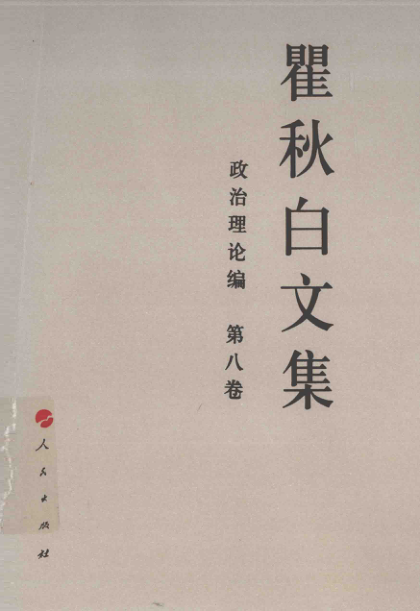 瞿秋白文集
政治理论编 第八卷
人民出版社